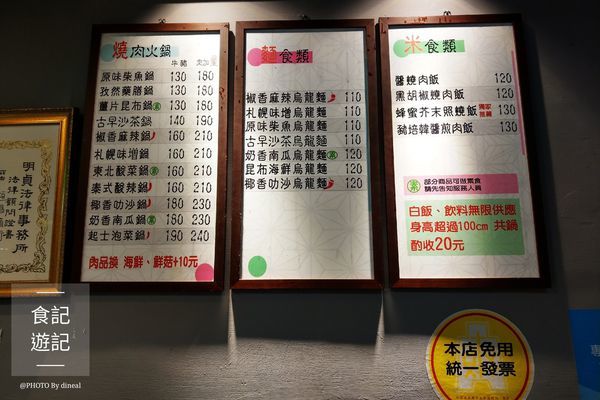 燒肉火鍋
牛豬
原味柴魚鍋 130 180
孜然藥膳鍋 130 180
薑片昆布鍋 素 130 180
古早沙茶鍋 140 190
椒香麻辣鍋 160 210
札幌味增鍋 160 210
東北酸菜鍋 素 160 210
泰式酸辣鍋 160 210
椰香叻沙鍋 180 230
奶香南瓜鍋 素 180 230
起士泡菜鍋 190 240
肉品換 海鮮、鮮菇+10元
麵食類
椒香麻辣烏龍麵 110
札幌味增烏龍麵 110
原味柴魚烏龍麵 110
古早沙茶烏龍麵 110
奶香南瓜烏龍麵 素 120
昆布海鮮烏龍麵 120
椰香叻沙烏龍麵 120
米食類
醬燒肉飯 120
黑胡椒燒肉飯 120
蜂蜜芥末照燒飯 獨家推薦 130
豬培韓醬煎肉飯 130
素 部分商品可做素食
請先告知服務人員
白飯、飲料無限供應
身高超過100cm 共鍋
酌收20元
明貞法律事務所
法律顧問證書
食記
遊記
@PHOTO By dineal
本店免用
統一發票